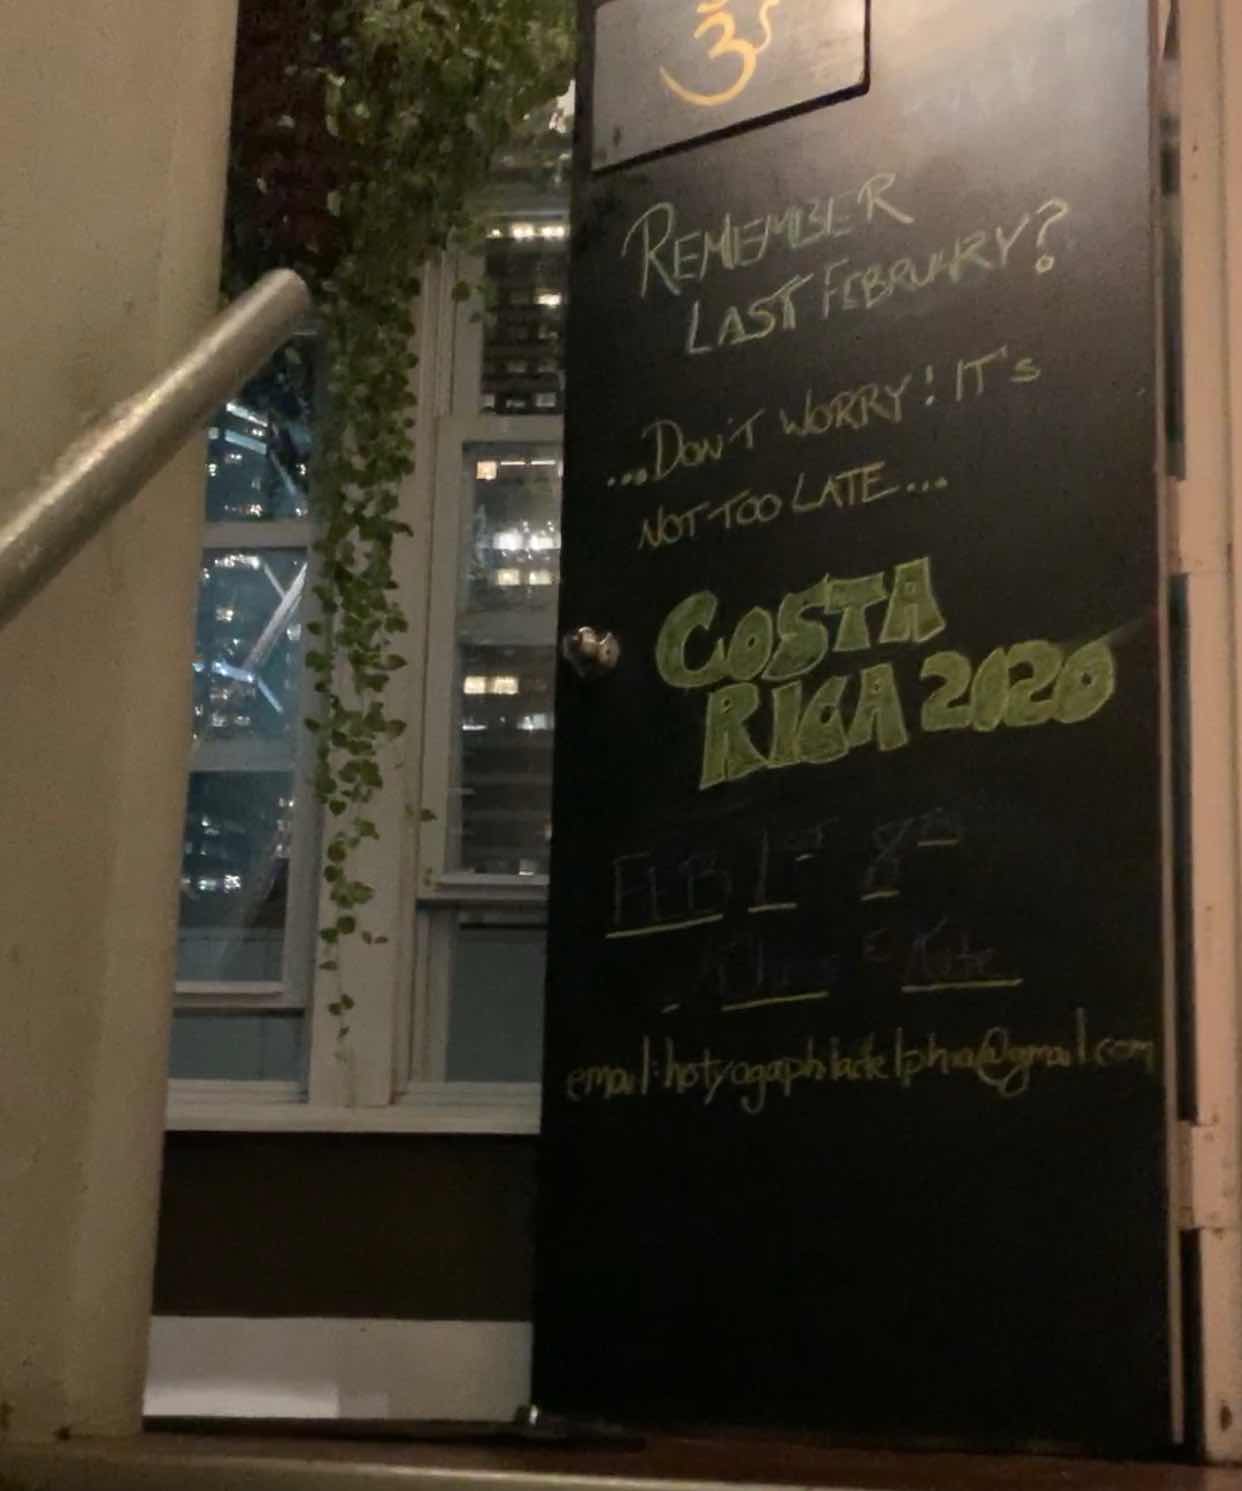 ॐ
REMEMBER
LAST FEBRUARY?
...DON'T WORRY! IT'S
NOT TOO LATE...
COSTA
RICA 2020
FEB 1ST 8TH
Kate
email:hotyogaphiladelphia@gmail.com